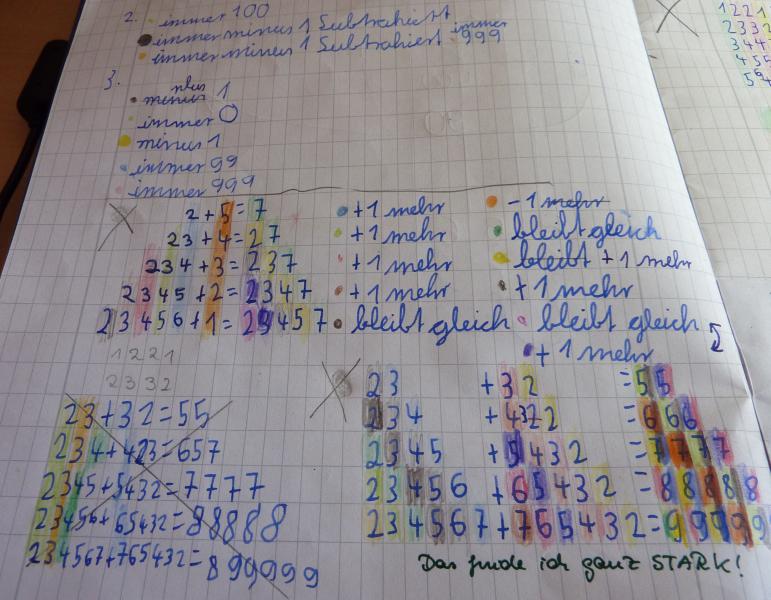 2. immer 100
immer minus 1 Subtrahiert
immer minus 1 Subtrahiert immer 999
3. plus
minus 1
immer 0
minus 1
immer 99
immer 999
2 + 5 = 7 +1 mehr - 1 mehr
23 + 4 = 27 +1 mehr bleibt gleich
234 + 3 = 237 +1 mehr bleibt +1 mehr
2345 + 2 = 2347 +1 mehr +1 mehr
23456 + 1 = 23457 bleibt gleich bleibt gleich
+1 mehr
1221
2332
23 + 32 = 55
234 + 423 = 657
2345 + 5432 = 7777
23456 + 65432 = 88888
234567 + 765432 = 899999
23 + 32 = 55
234 + 432 = 666
2345 + 5432 = 7777
23456 + 65432 = 88888
234567 + 765432 = 99999
Das finde ich ganz STARK!
1221
2332
344
455